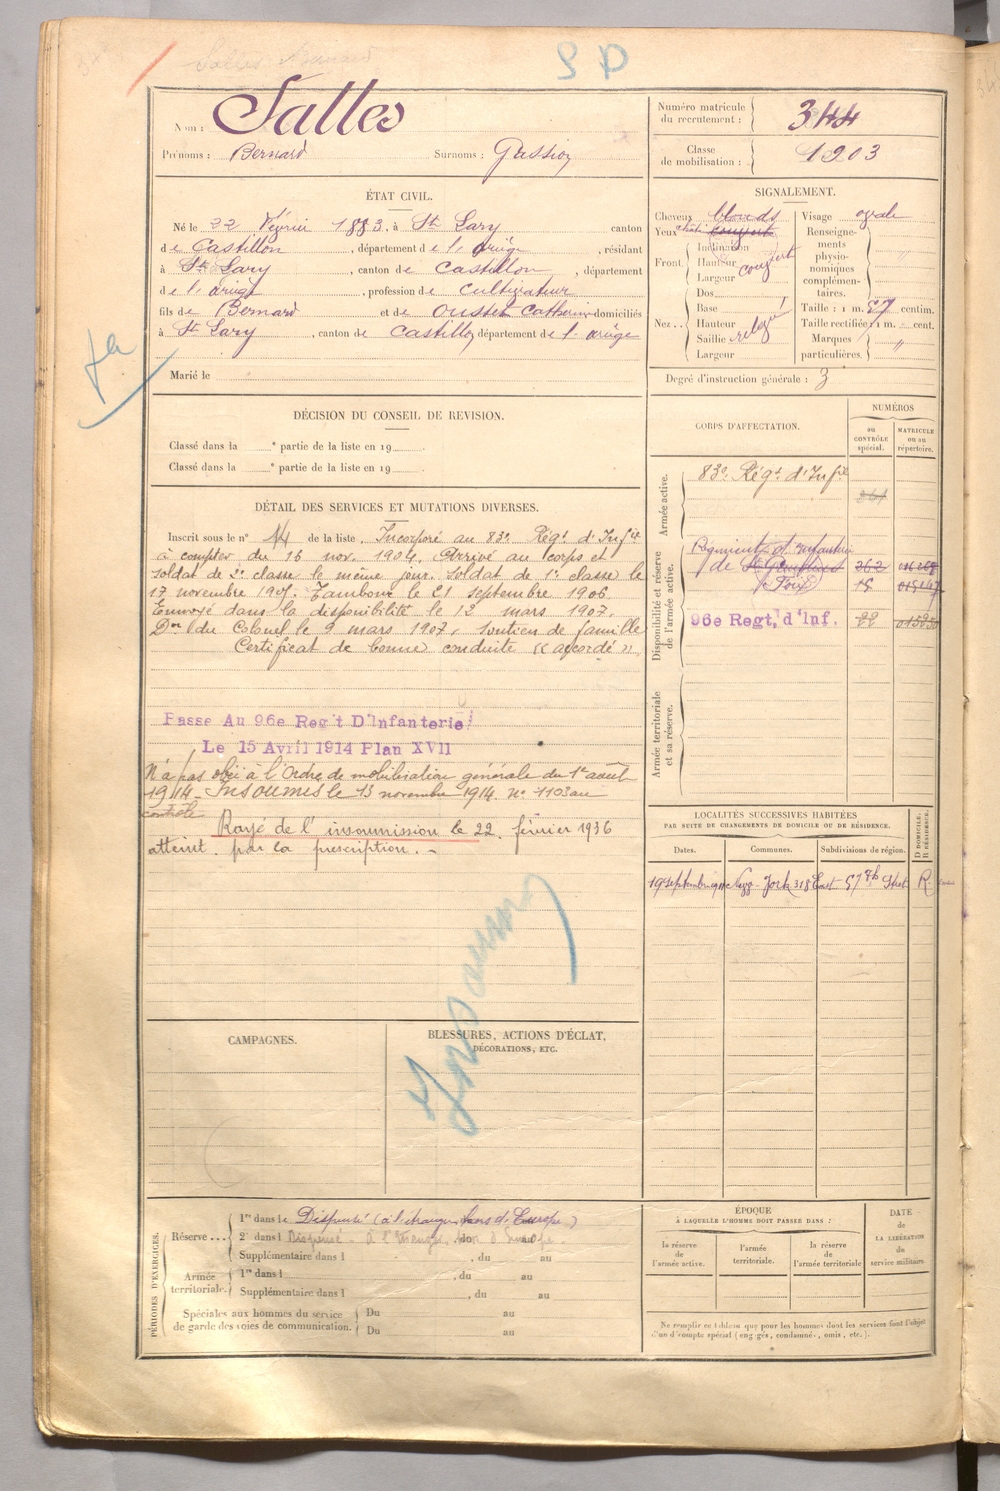 Salles Bernard
S D
Nom : Salles
Prénoms : Bernard Surnoms : Gassion
Numéro matricule du recrutement : 344
Classe de mobilisation : 1903
ÉTAT CIVIL.
Né le 22 Février 1883, à St Lary canton
de Castillon, département de l'ariège, résidant
à St Lary, canton de Castillon, département
de l'ariège, profession de cultivateur
fils de Bernard et de Ousset Catherine domiciliés
à St Lary, canton de Castillon département de l'ariège
Marié le
SIGNALEMENT.
Cheveux blonds
Yeux
Front. Inclinaison
Hauteur
Largeur couvert
Dos
Nez.. Base
Hauteur
Saillie relevé
Largeur
Visage ovale
Renseignements physionomiques complémentaires. "
Taille : 1 m. 57 centim.
Taille rectifiée : 1 m. - cent.
Marques particulières. "
Degré d'instruction générale : 3
DÉCISION DU CONSEIL DE REVISION.
Classé dans la e partie de la liste en 19
Classé dans la e partie de la liste en 19
DÉTAIL DES SERVICES ET MUTATIONS DIVERSES.
Inscrit sous le n° 14 de la liste. Incorporé au 83e Régt d'Infie
à compter du 16 nov. 1904. Arrivé au corps et
soldat de 2e classe le même jour. Soldat de 1e classe le
17 novembre 1905. Tambour le 21 septembre 1906
Envoyé dans la disponibilité le 12 mars 1907.
Don du Colonel le 9 mars 1907. Soutien de famille
Certificat de bonne conduite « accordé »
Passe Au 96e Reg't D'Infanterie
Le 15 Avril 1914 Plan XVII
N'a pas obéi à l'Ordre de mobilisation générale du 1er août
1914. Insoumis le 13 novembre 1914. n° 1103 au
contrôle
Rayé de l'insoumission le 22 février 1936
atteint par la prescription. -
Insoumis
CORPS D'AFFECTATION.
NUMÉROS
au CONTRÔLE spécial.
MATRICULE ou au répertoire.
Armée active.
83e Régt d'Infie
Disponibilité et réserve de l'armée active.
Régiment d'infanterie
de St Gaudens 262
Foix 15
96e Regt, d'Inf.
Armée territoriale et sa réserve.
LOCALITÉS SUCCESSIVES HABITÉES
PAR SUITE DE CHANGEMENTS DE DOMICILE OU DE RÉSIDENCE.
Dates. Communes. Subdivisions de région. D. DOMICILE. R. RÉSIDENCE.
New-York 318 East 57th Street R
CAMPAGNES.
BLESSURES, ACTIONS D'ÉCLAT,
DÉCORATIONS, ETC.
PÉRIODES D'EXERCICES.
Réserve... 1re dans le Dispensé (à l'étranger hors d'Europe)
2e dans l Dispensé - à l'étranger, hors d'Europe.
Supplémentaire dans l , du au
Armée territoriale. 1re dans l , du au
Supplémentaire dans l , du au
Spéciales aux hommes du service de garde des voies de communication. Du au
Du au
ÉPOQUE
À LAQUELLE L'HOMME DOIT PASSER DANS :
la réserve de l'armée active.
l'armée territoriale.
la réserve de l'armée territoriale
DATE de LA LIBÉRATION du service militaire.
Ne remplir ce tableau que pour les hommes dont les services font l'objet
d'un décompte spécial (engagés, condamnés, omis, etc.).